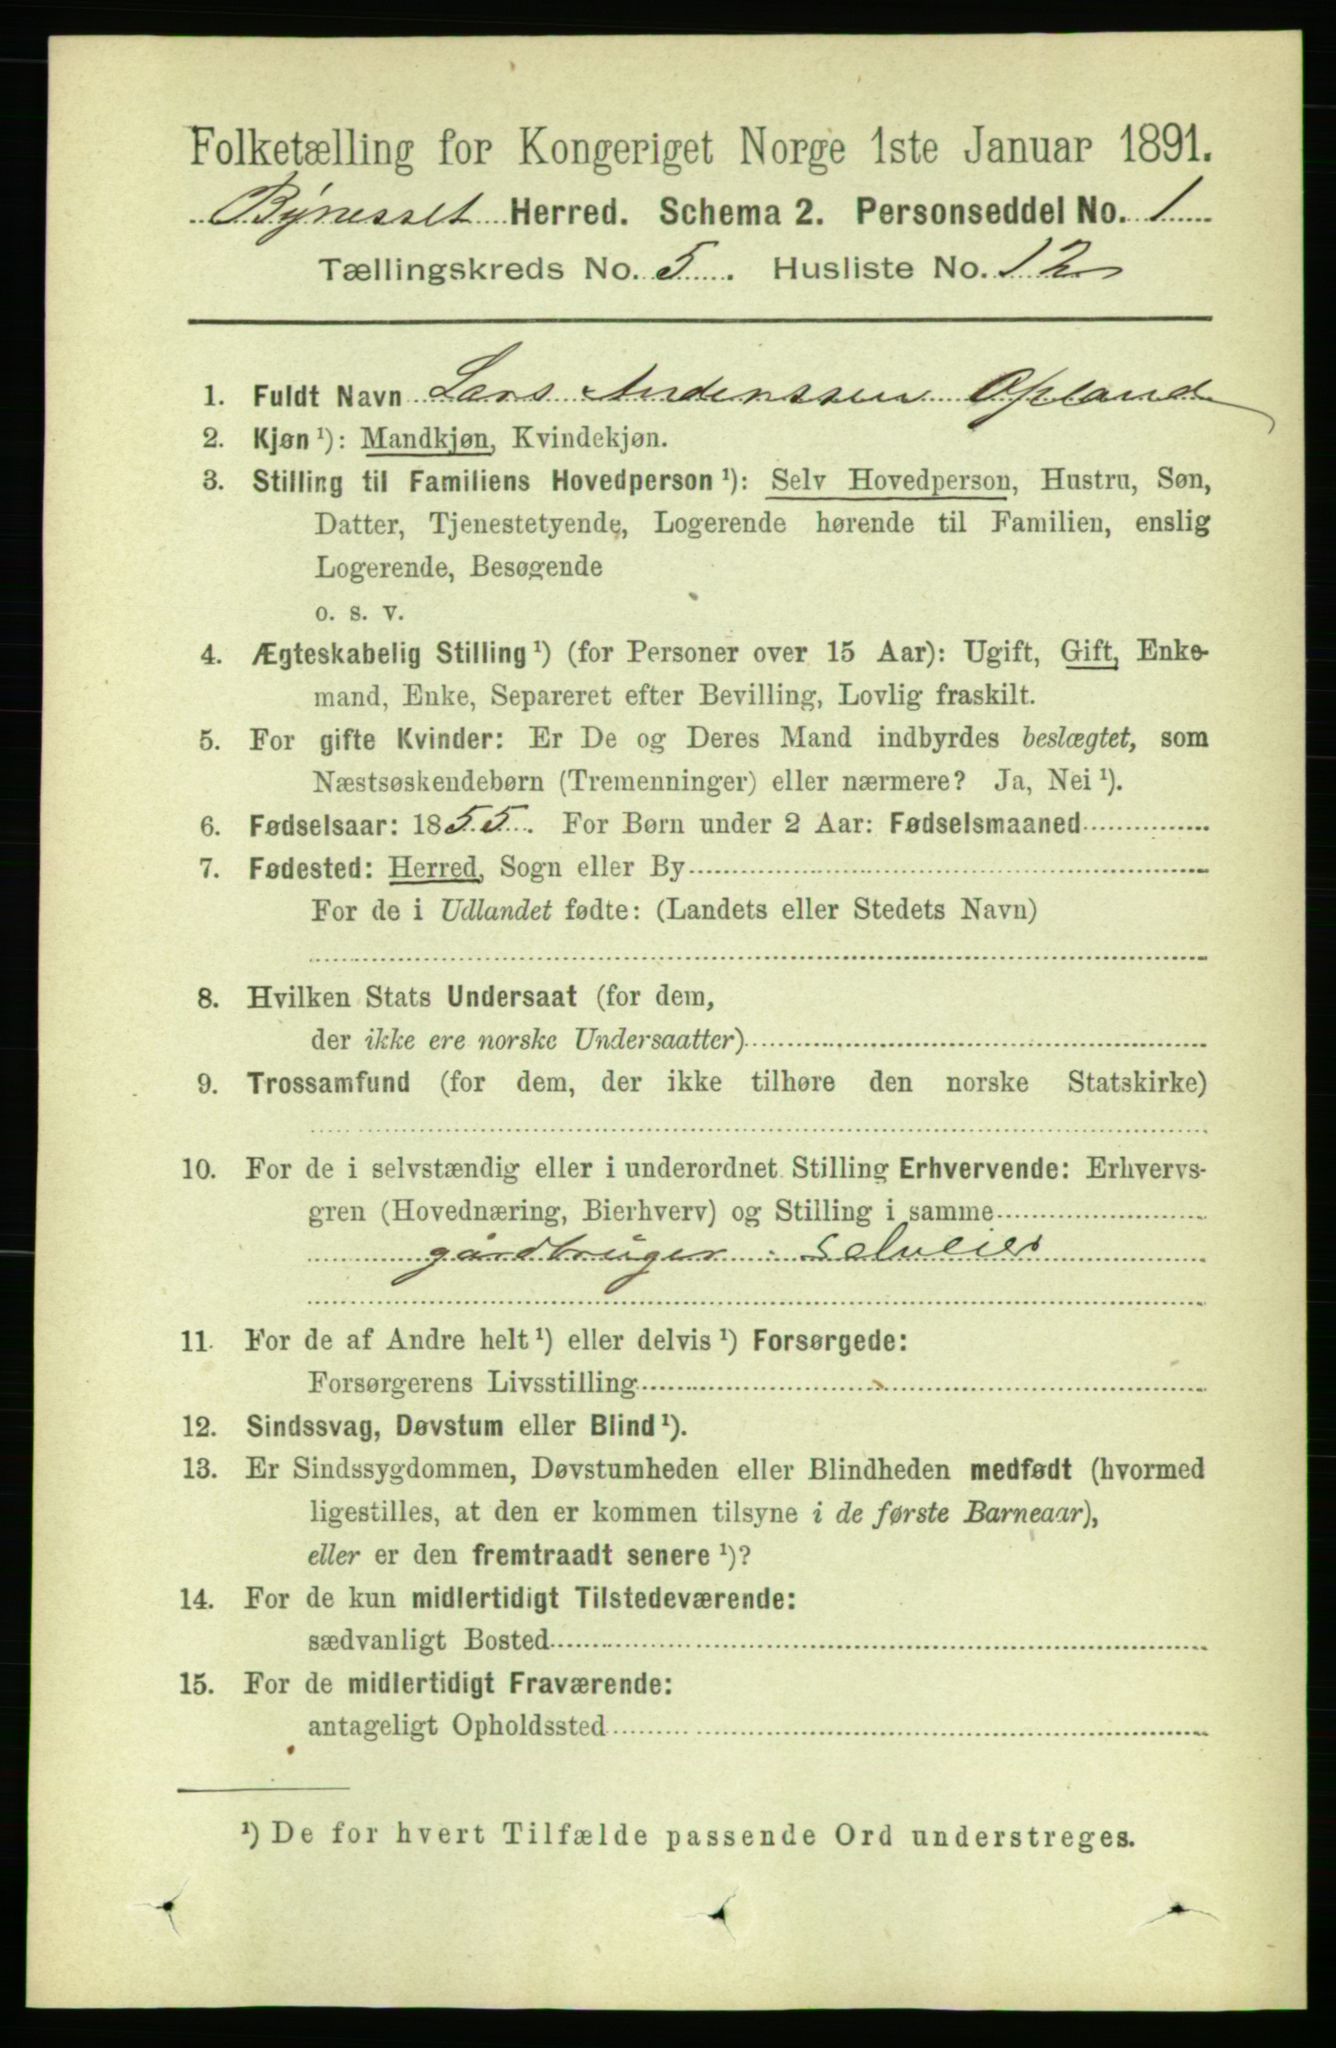 Folketælling for Kongeriget Norge 1ste Januar 1891.
Bynesset Herred. Schema 2. Personseddel No. 1
Tællingskreds No. 5. Husliste No. 12
1. Fuldt Navn Lars Anderssen Opland
2. Kjøn ¹): Mandkjøn, Kvindekjøn.
3. Stilling til Familiens Hovedperson ¹): Selv Hovedperson, Hustru, Søn,
Datter, Tjenestetyende, Logerende hørende til Familien, enslig
Logerende, Besøgende
o. s. v.
4. Ægteskabelig Stilling ¹) (for Personer over 15 Aar): Ugift, Gift, Enke-
mand, Enke, Separeret efter Bevilling, Lovlig fraskilt.
5. For gifte Kvinder: Er De og Deres Mand indbyrdes beslægtet, som
Næstsøskendebørn (Tremenninger) eller nærmere? Ja, Nei ¹).
6. Fødselsaar: 1855. For Børn under 2 Aar: Fødselsmaaned
7. Fødested: Herred, Sogn eller By
For de i Udlandet fødte: (Landets eller Stedets Navn)
8. Hvilken Stats Undersaat (for dem,
der ikke ere norske Undersaatter)
9. Trossamfund (for dem, der ikke tilhøre den norske Statskirke)
10. For de i selvstændig eller i underordnet Stilling Erhvervende: Erhvervs-
gren (Hovednæring, Bierhverv) og Stilling i samme
gårdbruger : Selveier
11. For de af Andre helt ¹) eller delvis ¹) Forsørgede:
Forsørgerens Livsstilling
12. Sindssvag, Døvstum eller Blind ¹).
13. Er Sindssygdommen, Døvstumheden eller Blindheden medfødt (hvormed
ligestilles, at den er kommen tilsyne i de første Barneaar),
eller er den fremtraadt senere ¹)?
14. For de kun midlertidigt Tilstedeværende:
sædvanligt Bosted
15. For de midlertidigt Fraværende:
antageligt Opholdssted
¹) De for hvert Tilfælde passende Ord understreges.